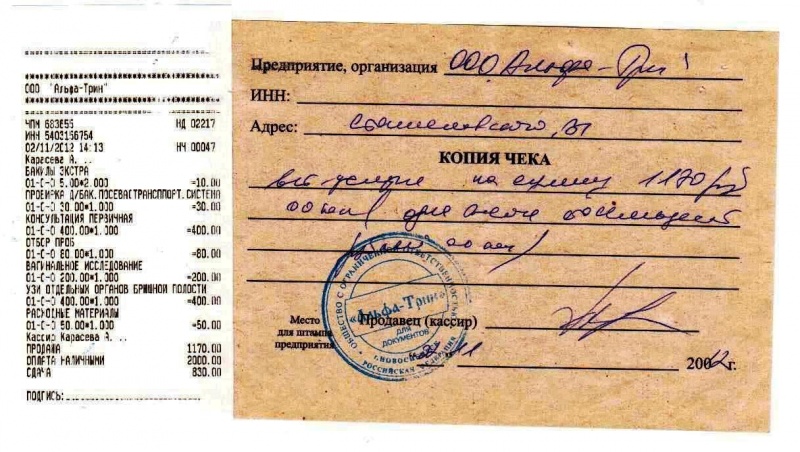 ООО "Альфа-Трин"
ЧПМ 683655 НД 02217
ИНН 5403166754
02/11/2012 14:13 НЧ 00047
Карасева А. ..
БАХИЛЫ ЭКСТРА
01-С-О 5.00*2.000 =10.00
ПРОБИРКА Д/БАК.ПОСЕВА
01-С-О 30.00*1.000 =30.00
КОНСУЛЬТАЦИЯ ПЕРВИЧНАЯ
01-С-О 400.00*1.000 =400.00
ОТБОР ПРОБ
01-С-О 80.00*1.000 =80.00
ВАГИНАЛЬНОЕ ИССЛЕДОВАНИЕ
01-С-О 200.00*1.000 =200.00
УЗИ ОТДЕЛЬНЫХ ОРГАНОВ БРЮШНОЙ ПОЛОСТИ
01-С-О 400.00*1.000 =400.00
РАСХОДНЫЕ МАТЕРИАЛЫ
01-С-О 50.00*1.000 =50.00
Кассир Карасева А. ..
ПРОДАЖА 1170.00
ОПЛАТА НАЛИЧНЫМИ 2000.00
СДАЧА 830.00
ПОДПИСЬ:
Предприятие, организация ООО Альфа-Трин
ИНН:
Адрес:
КОПИЯ ЧЕКА
на сумму 1170 руб
00 коп
ОБЩЕСТВО С ОГРАНИЧЕННОЙ ОТВЕТСТВЕННОСТЬЮ
«Альфа-Трин»
ДЛЯ ДОКУМЕНТОВ
РОССИЙСКАЯ ФЕДЕРАЦИЯ
Место для штампа предприятия
Продавец (кассир)
11 2012 г.